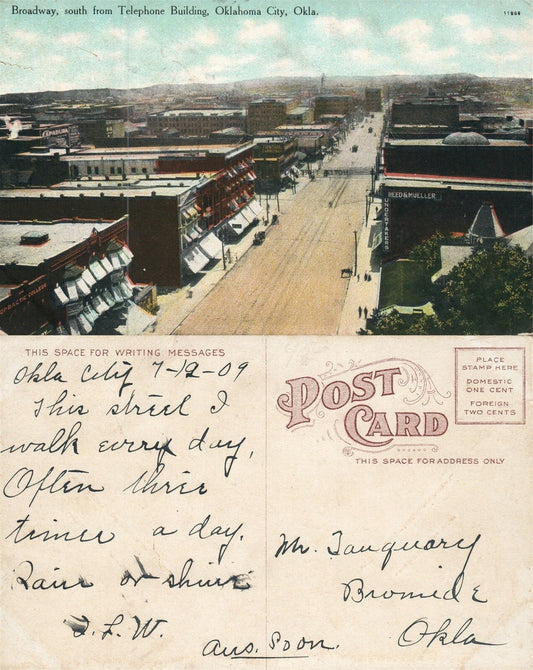 Broadway, south from Telephone Building, Oklahoma City, Okla.
REED & MUELLER
UNDERTAKERS
THIS SPACE FOR WRITING MESSAGES
Okla City 7-12-09
This street I
walk every day,
Often three
times a day.
Rain or shine
POST CARD
PLACE
STAMP HERE
DOMESTIC
ONE CENT
FOREIGN
TWO CENTS
THIS SPACE FOR ADDRESS ONLY
Mr. Tanquary
Bromide
Okla
Ans. Soon.